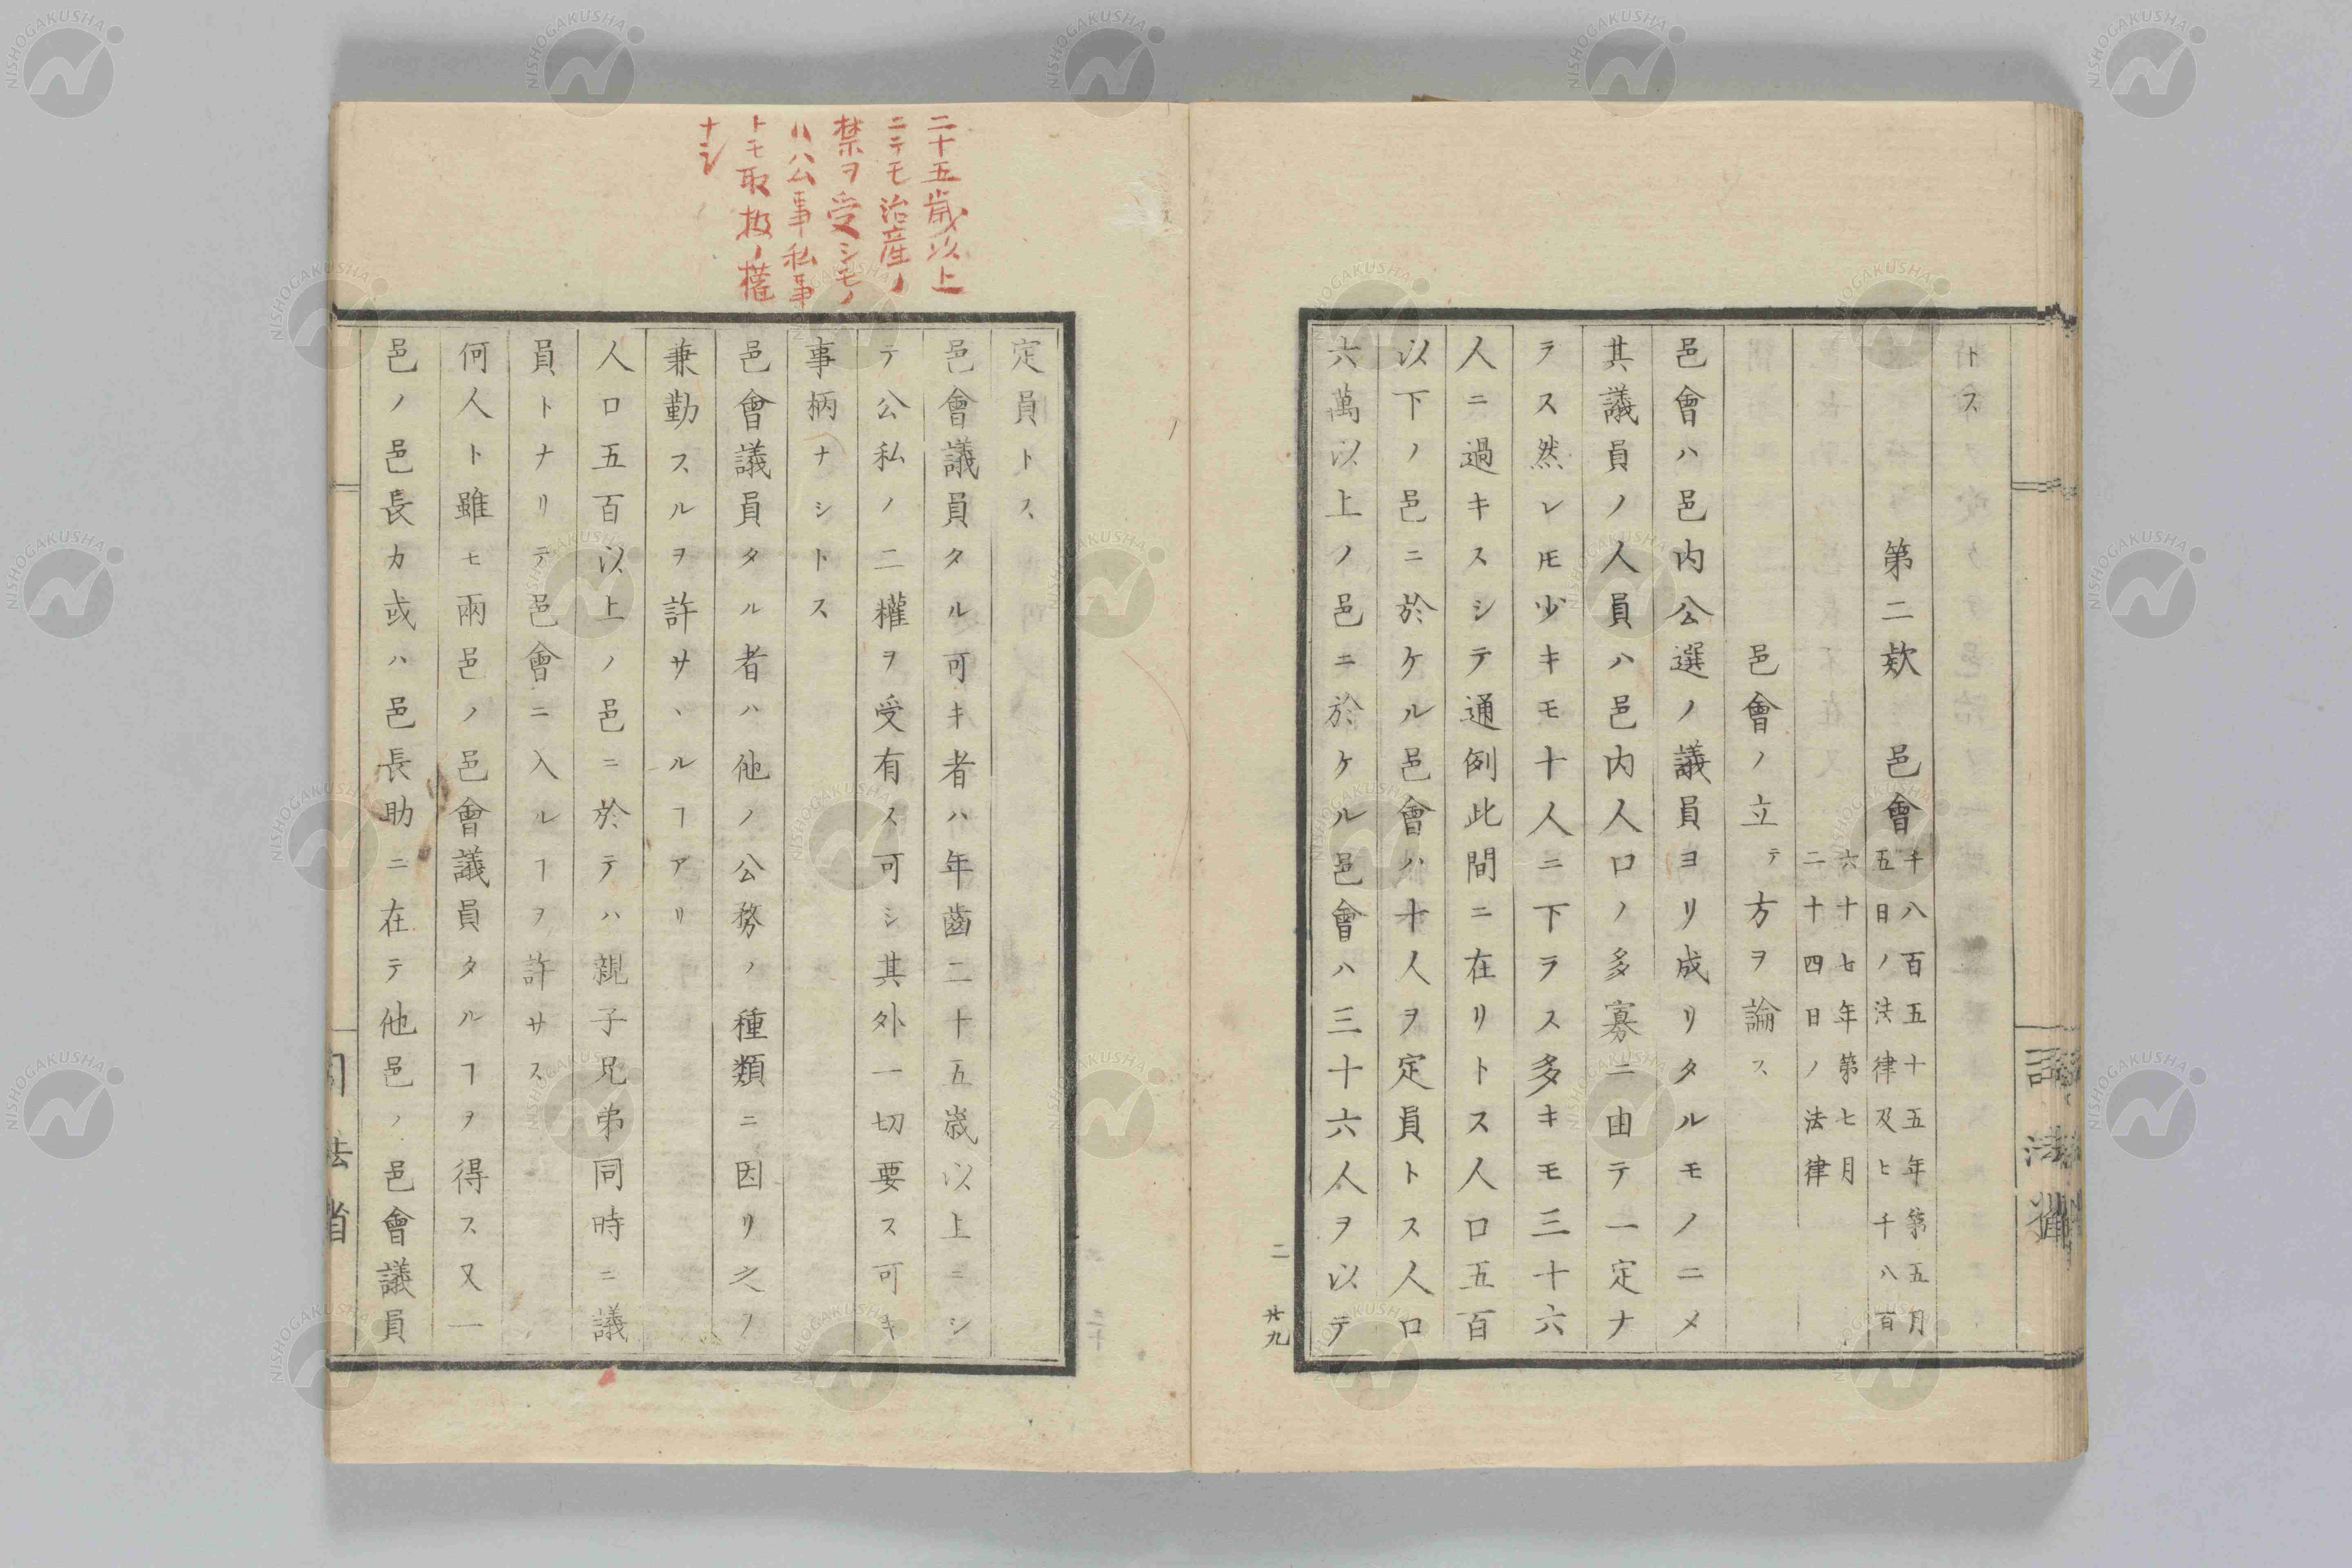 トス
第二欵 邑會 千八百五十五年第五月
五日ノ法律及ヒ千八百
六十七年第七月
二十四日ノ法律
邑會ノ立テ方ヲ論ス
邑會ハ邑内公選ノ議員ヨリ成リタルモノニメ
其議員ノ人員ハ邑内人口ノ多寡ニ由テ一定ナ
ラス然レ𪜈少キモ十人ニ下ラス多キモ三十六
人ニ過キスシテ通例此間ニ在リトス人口五百
以下ノ邑ニ於ケル邑會ハ十人ヲ定員トス人口
六萬以上ノ邑ニ於ケル邑會ハ三十六人ヲ以テ
二 廿九
二十五歳以上
ニテモ治産ノ
禁ヲ受シモノ
ハ公事私事
トモ取扱ノ權
ナシ
定員トス
邑會議員タル可キ者ハ年齒二十五歳以上ニシ
テ公私ノ二權ヲ受有ス可シ其外一切要ス可キ
事柄ナシトス
邑會議員タル者ハ他ノ公務ノ種類ニ因リ之ヲ
兼勤スルヲ許サヽルヿアリ
人口五百以上ノ邑ニ於テハ親子兄弟同時ニ議
員トナリテ邑會ニ入ルヿヲ許サス
何人ト雖モ兩邑ノ邑會議員タルヿヲ得ス又一
邑ノ邑長カ或ハ邑長助ニ在テ他邑ノ邑會議員
法省
NISHOGAKUSHA